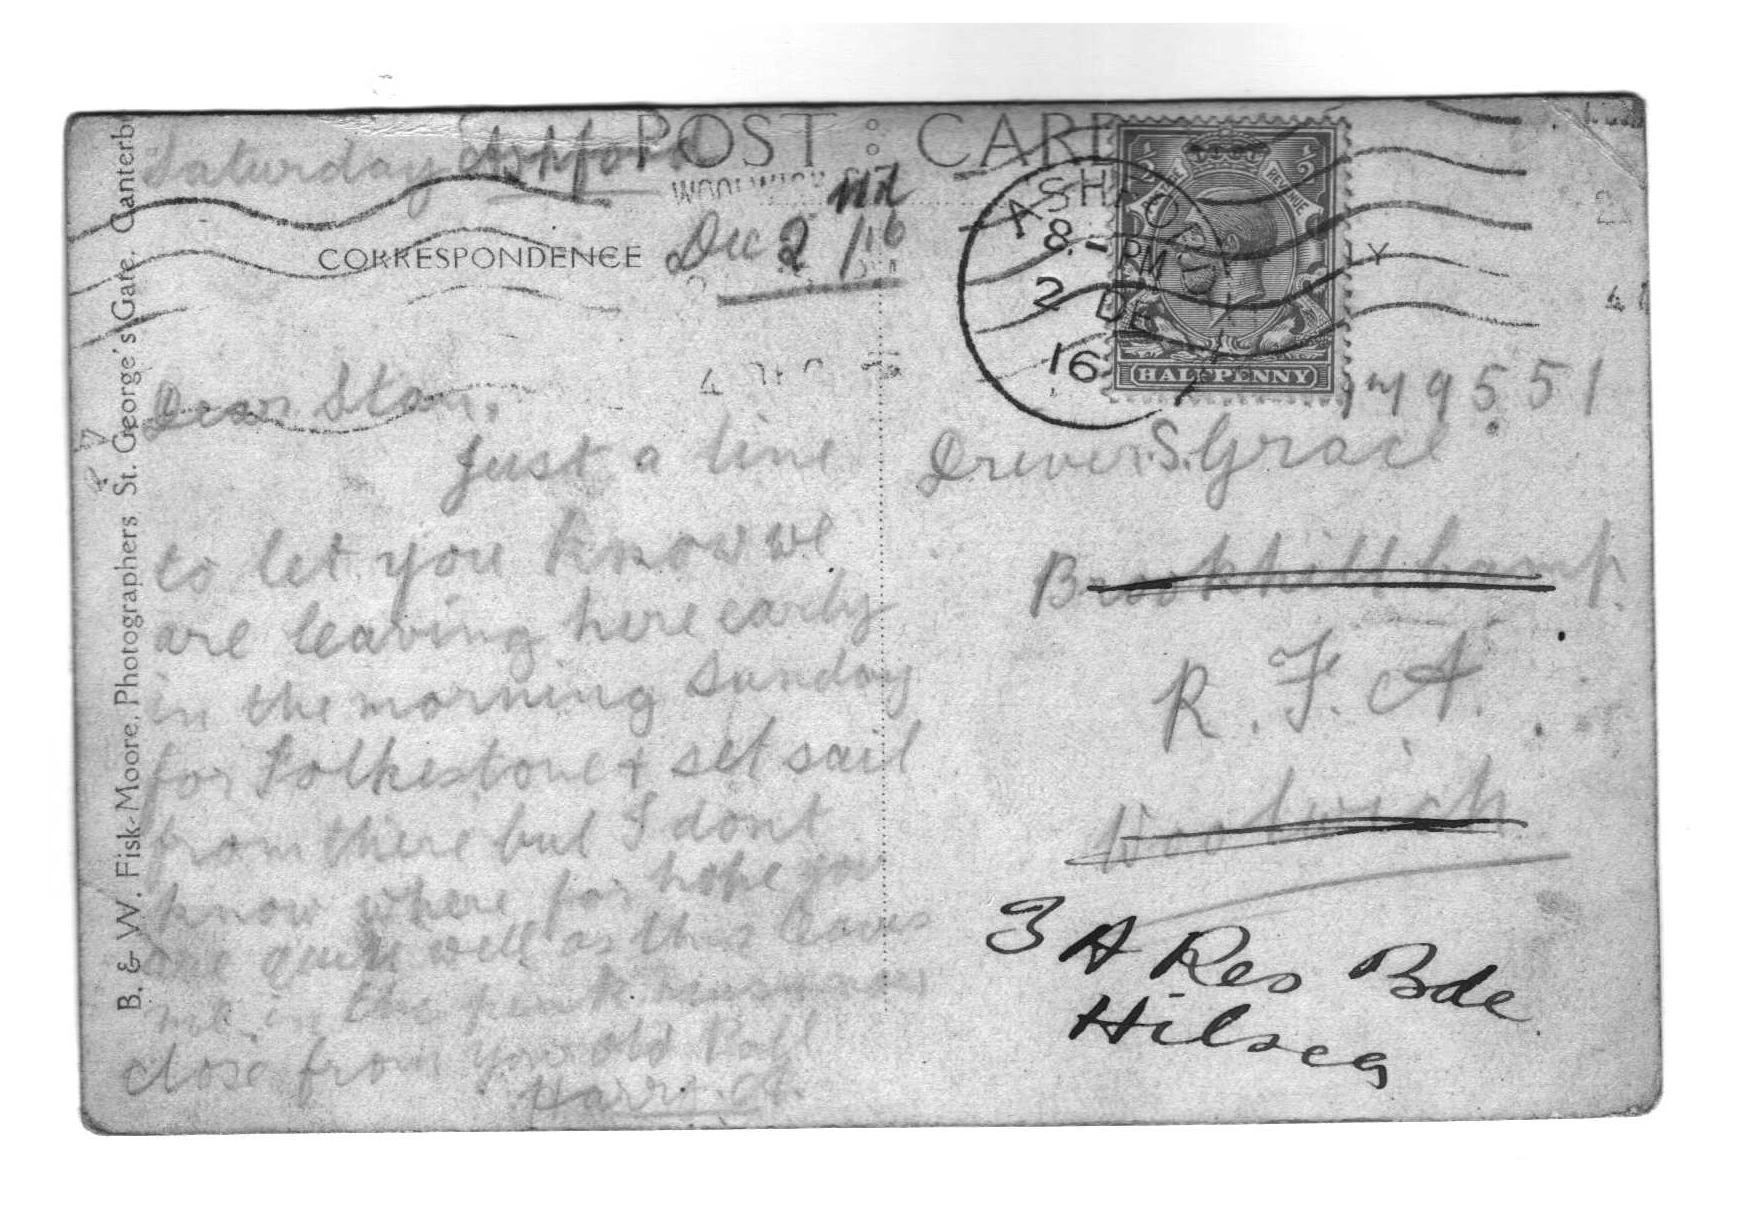 POST CARD
Saturday Ashford
WOOLWICH
Dec 2nd /16
CORRESPONDENCE
ASHFORD
8 - PM
2 DE
16
HALFPENNY
Dear Stan,
Just a line
to let you know we
are leaving here early
in the morning Sunday
for Folkestone & set sail
from there but I dont
know where for hope you
are quite well as this leaves
me in the pink
close from your old Pall
Harry.
9551
Driver S. Grace
Brookhill Camp.
R. F. A.
Woolwich
3 A Res Bde
Hilsea
B. & W. Fisk-Moore, Photographers St. George's Gate, Canterb